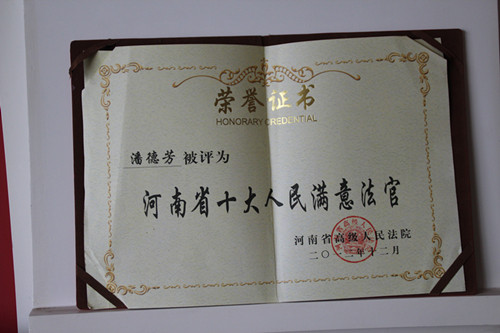 荣誉证书
HONORARY CREDENTIAL
潘德芳 被评为
河南省十大人民满意法官
河南省高级人民法院
二〇一二年十二月